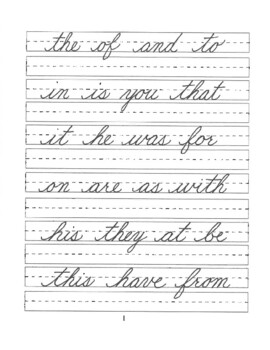 the of and to
in is you that
it he was for
on are as with
his they at be
this have from
1